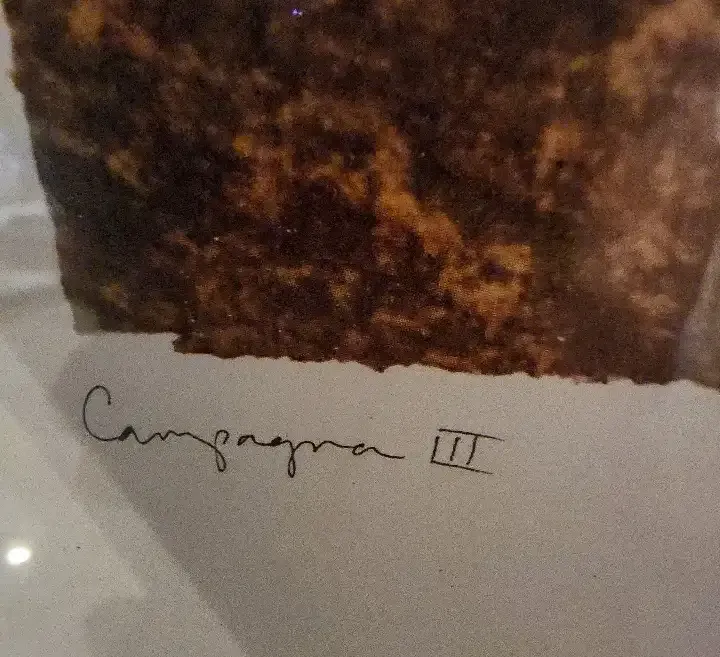 Campagna III